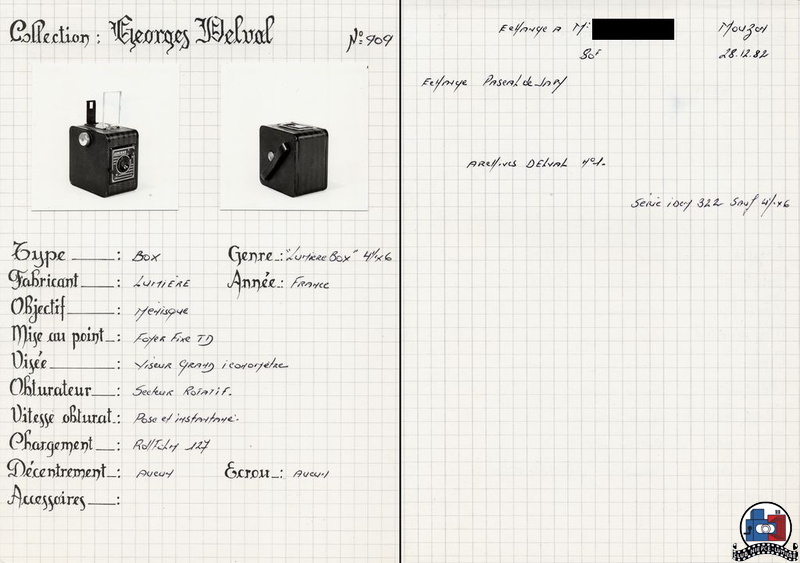 Collection : Georges Delval N° 909
Type : Box Genre : "Lumière Box" 4½x6
Fabricant : Lumière Année : France
Objectif : Ménisque
Mise au point : Foyer Fixe TD
Visée : Viseur Grand iconomètre
Obturateur : Secteur Rotatif.
Vitesse obturat : Pose et instantané.
Chargement : Rollfilm 127
Décentrement : Aucun Ecrou : Aucun
Accessoires :
Echange A Mr Mouzon
28.12.82
Echange Pascal de
Archives Delval n°1.
Série idem 322 Sauf 4½x6